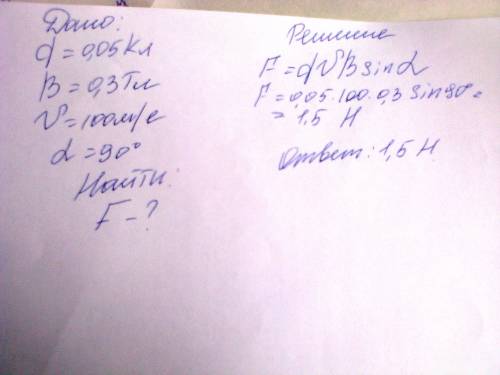 Дано:
q = 0,05 Кл
B = 0,3 Тл
V = 100 м/с
α = 90°
Найти:
F - ?
Решение
F = qVB sin α
F = 0,05 · 100 · 0,3 sin 90° =
= 1,5 Н
Ответ: 1,5 Н